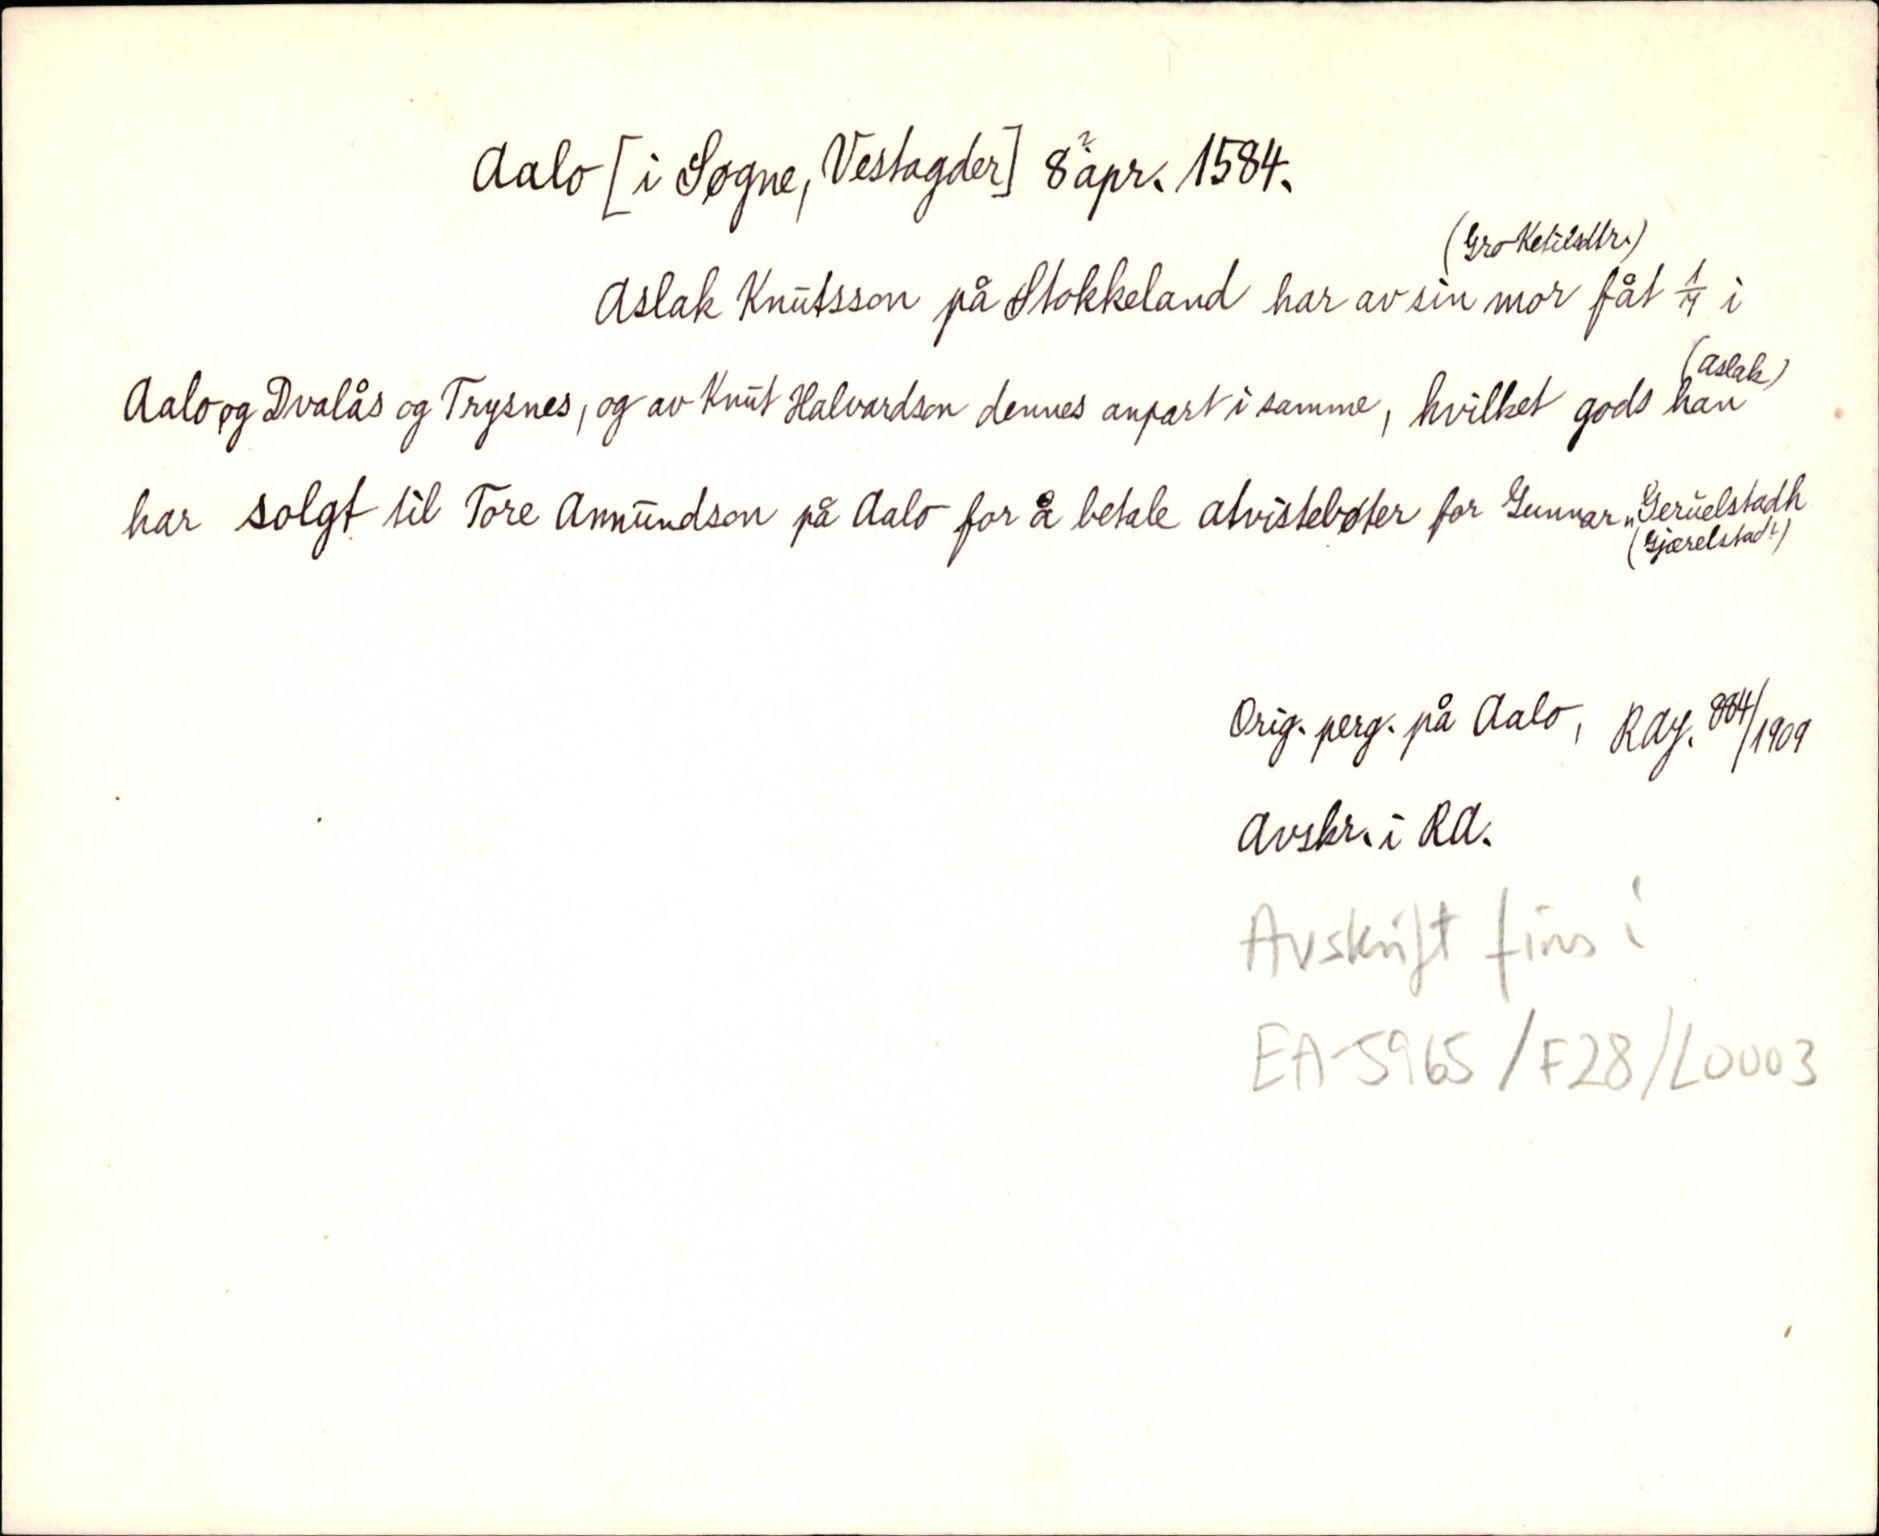 Aalo [i Søgne, Vestagder] 8 ? apr. 1584.
(Gro Ketilsdtr.)
Aslak Knutsson på Stokkeland har av sin mor fåt 1/4 i
(Aslak)
Aalo og Dvalås og Trysnes, og av Knut Halvardson dennes anpart i samme, hvilket gods han
har solgt til Tore Amundson på Aalo for å betale atvistebøter for Gunnar „Geruelstadh
(Gjærelstad?)
Orig. perg. på Aalo, RAJ. 884/1909
Avskr. i RA.
Avskrift fins i
EA-5965/F28/L0003